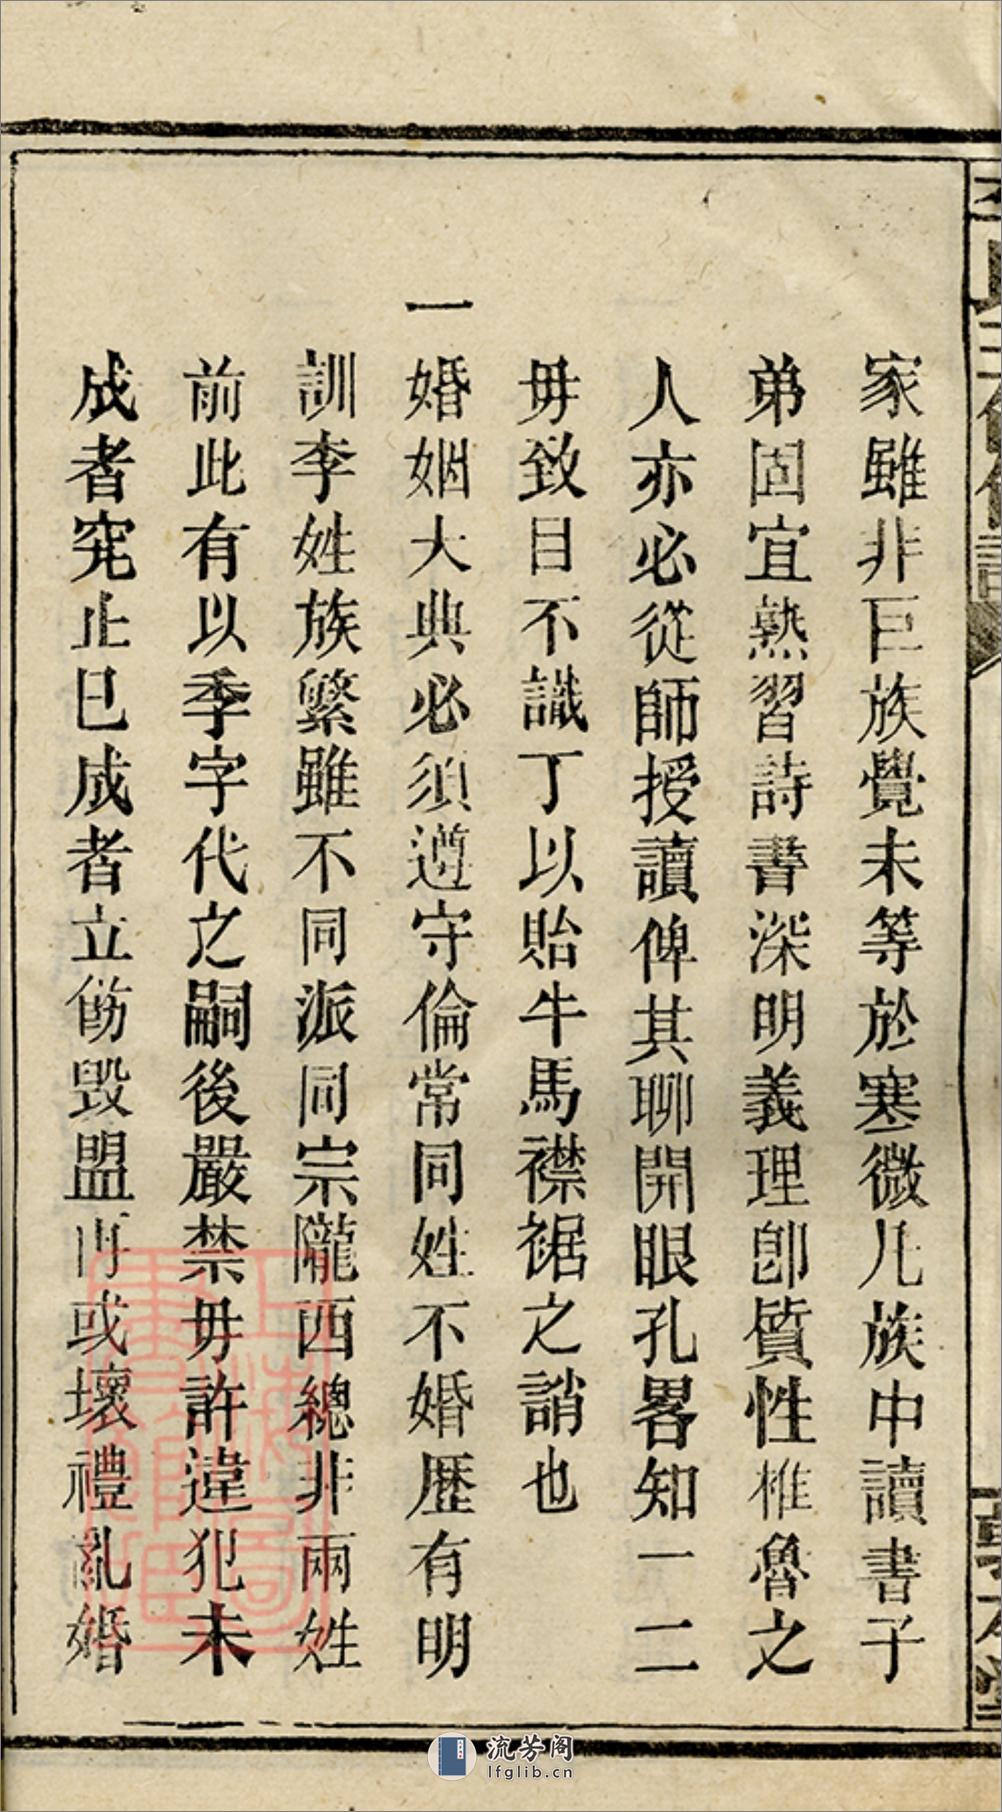 家雖非巨族覺未等於寒微凡族中讀書子
弟固宜熟習詩書深明義理卽質性椎魯之
人亦必從師授讀俾其聊開眼孔畧知一二
毋致目不識丁以貽牛馬襟裾之誚也
一婚姻大典必須遵守倫常同姓不婚歷有明
訓李姓族繁雖不同派同宗隴西總非兩姓
前此有以季字代之嗣後嚴禁毋許違犯未
成者究止已成者立飭毀盟冉或壞禮亂婚
流芳阁
lfglib.cn